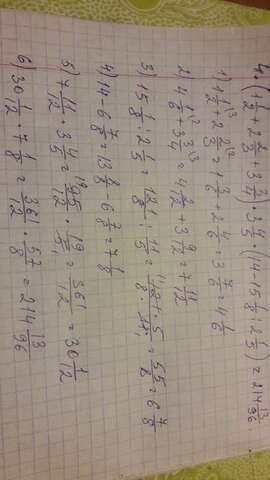 4. (1 1/2 + 2 2/3 + 3 3/4) · 3 4/5 · (14 - 15 1/8 : 2 1/5) = 214 13/96.
1) 1 1/2 + 2 2/3 = 1 3/6 + 2 4/6 = 3 7/6 = 4 1/6
2) 4 1/6 + 3 3/4 = 4 2/12 + 3 9/12 = 7 11/12
3) 15 1/8 : 2 1/5 = 121/8 : 11/5 = 121 · 5/8 · 11 = 55/8 = 6 7/8
4) 14 - 6 7/8 = 13 8/8 - 6 7/8 = 7 1/8
5) 7 11/12 · 3 4/5 = 95/12 · 19/5 = 361/12 = 30 1/12
6) 30 1/12 · 7 1/8 = 361/12 · 57/8 = 214 13/96